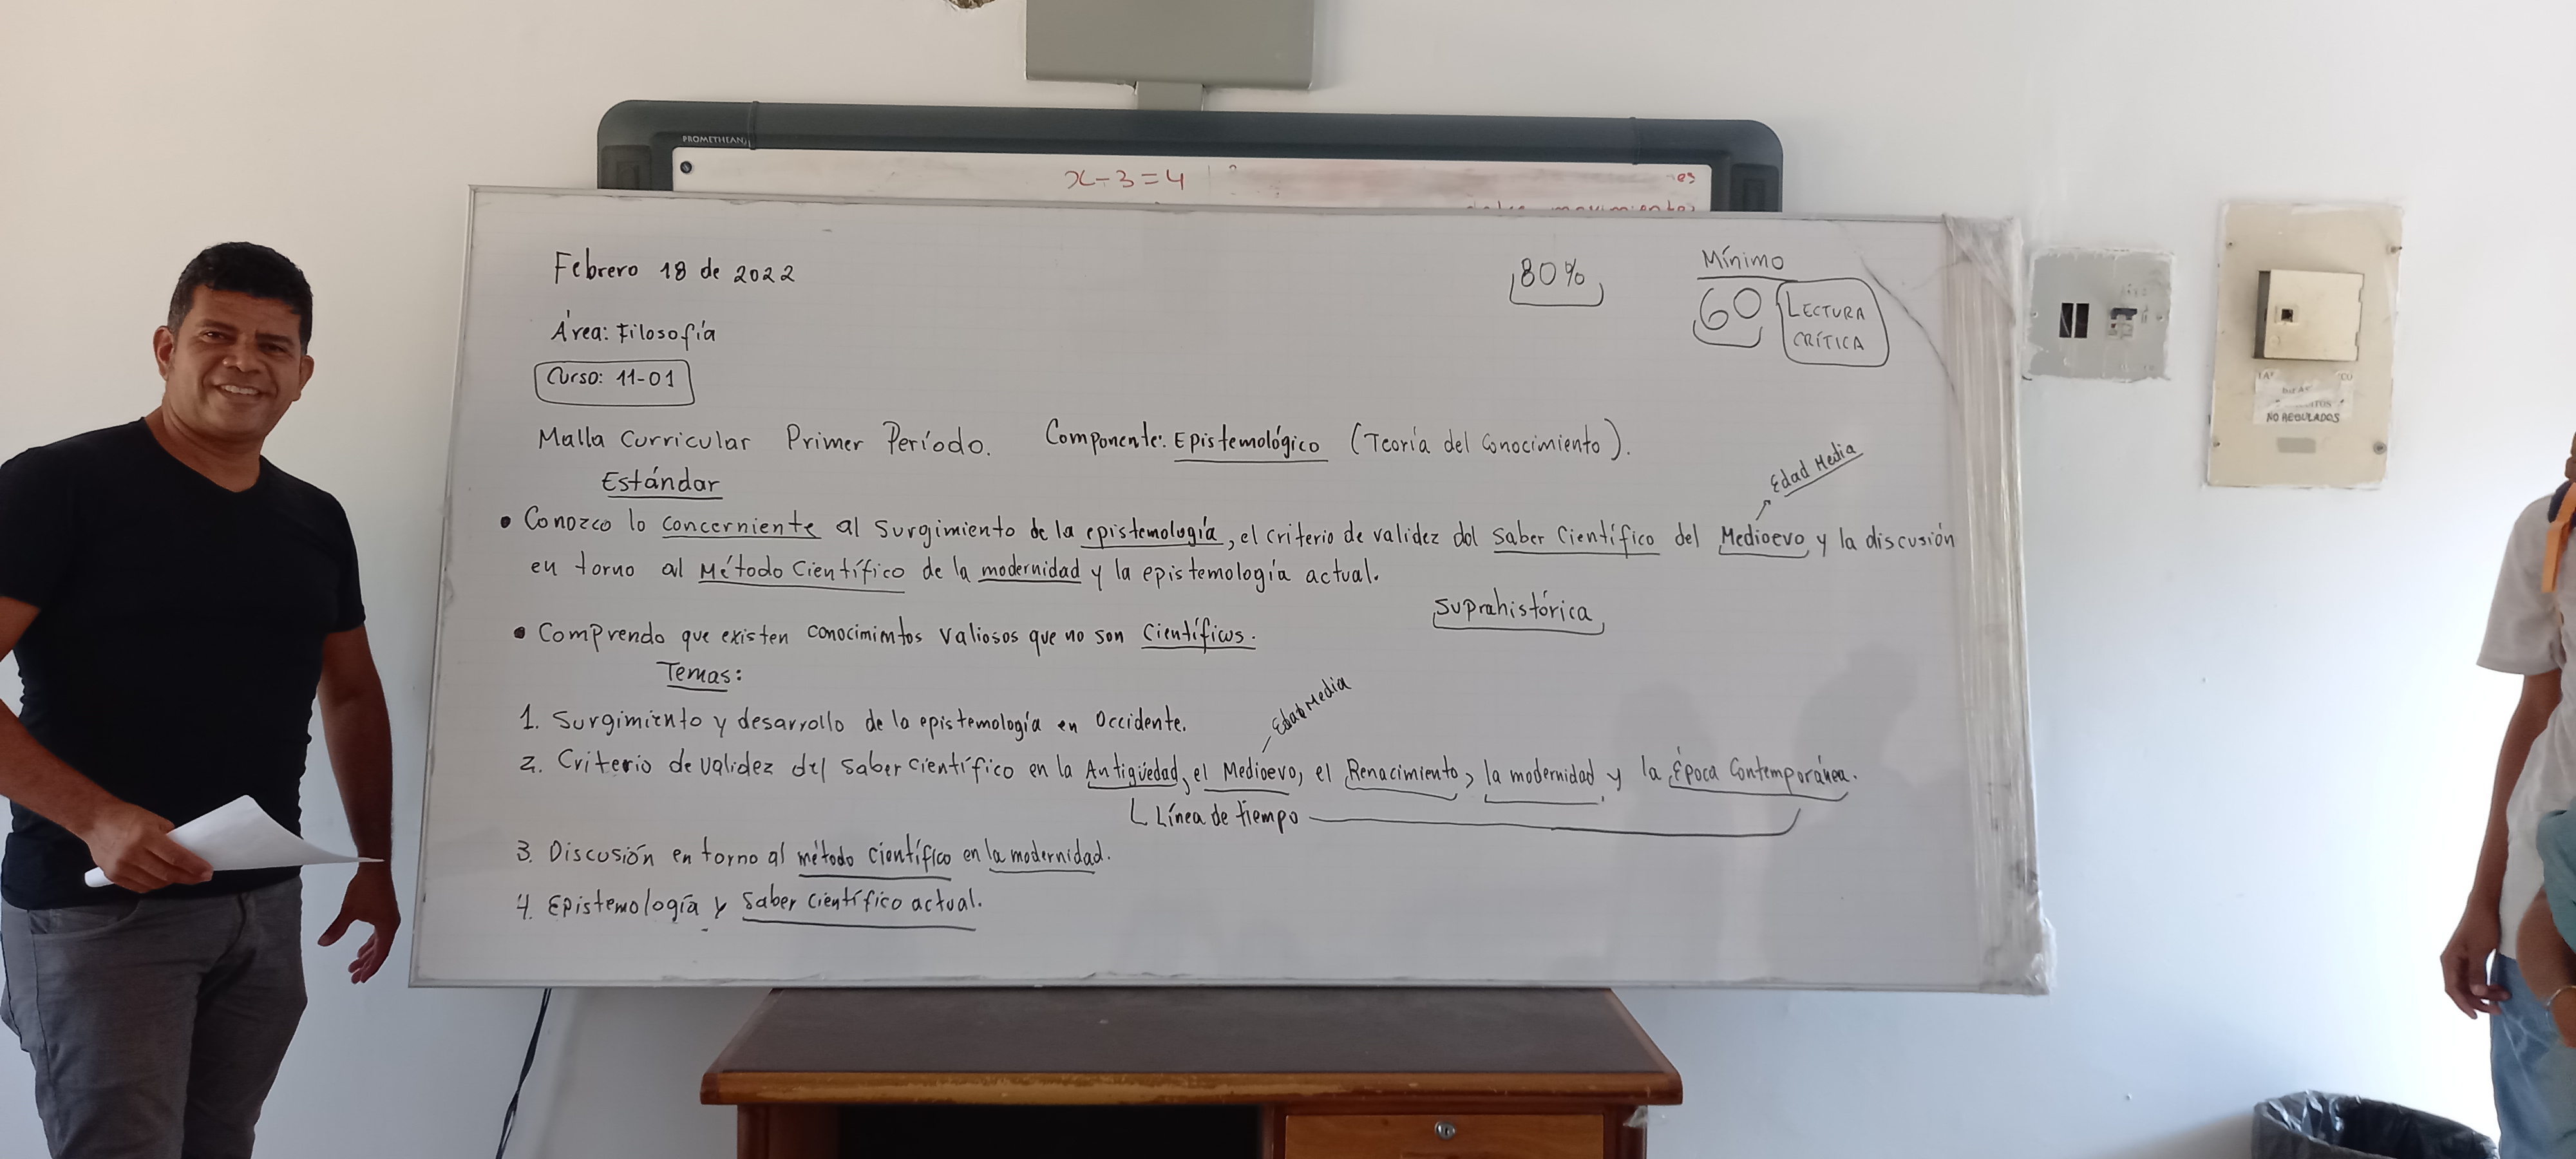 PROMETHEAN
x - 3 = 4
es
Febrero 18 de 2022
80%
Mínimo
60
LECTURA
CRÍTICA
Área: Filosofía
Curso: 11-01
Malla Curricular Primer Período. Componente: Epistemológico (Teoría del Conocimiento).
Estándar
Edad Media
• Conozco lo concerniente al surgimiento de la epistemología, el criterio de validez del Saber Científico del Medioevo y la discusión
en torno al Método Científico de la modernidad y la epistemología actual.
Suprahistórica
• Comprendo que existen conocimientos valiosos que no son Científicos.
Temas:
Edad Media
1. Surgimiento y desarrollo de la epistemología en Occidente.
2. Criterio de validez del saber científico en la Antigüedad, el Medioevo, el Renacimiento, la modernidad y la Época Contemporánea.
Línea de tiempo
3. Discusión en torno al método científico en la modernidad.
4. Epistemología y Saber científico actual.
NO REGULADOS